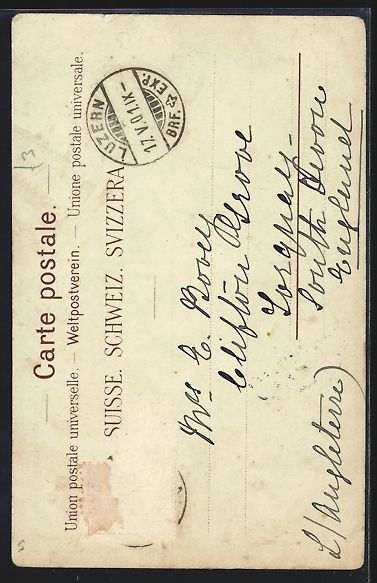 Carte postale.
Union postale universelle. — Weltpostverein. — Unione postale universale.
SUISSE. SCHWEIZ. SVIZZERA.
LUZERN
17.V.01.IX-
BRF. EXP.
Mrs E. Bovey
Clifton Grove
Torquay
South Devon
England
(Angleterre)
3